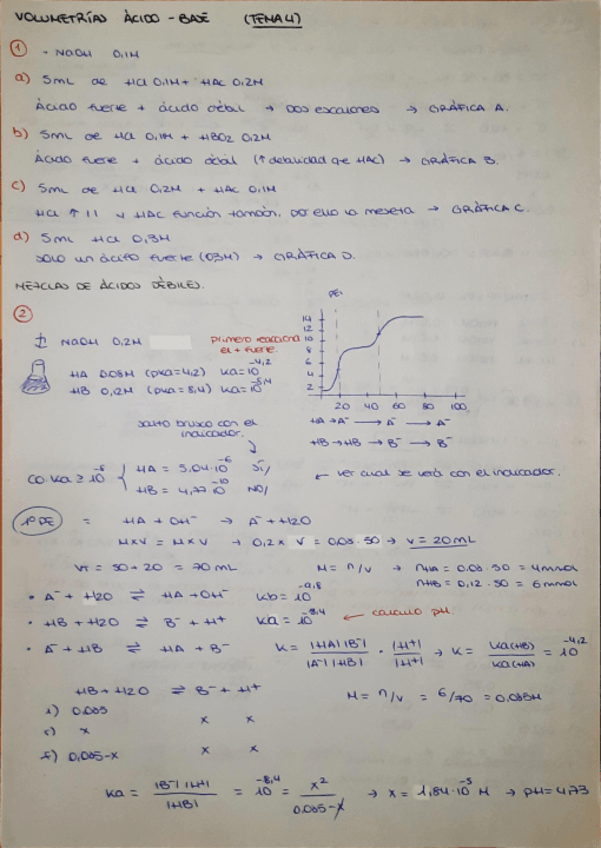 VOLUMETRÍAS ÁCIDO-BASE (TEMA 4)
① → NaOH 0,1M
a) 5mL de HCl 0,1M + HAc 0,2M
Ácido fuerte + ácido débil → dos escalones → GRÁFICA A.
b) 5mL de HCl 0,1M + HBO2 0,2M
Ácido fuerte + ácido débil (↑ debilidad que HAc) → GRÁFICA B.
c) 5mL de HCl 0,2M + HAc 0,1M
HCl ↑ [] y HAc función tampón, por ello la meseta → GRÁFICA C.
d) 5mL HCl 0,3M
Solo un ácido fuerte (0,3M) → GRÁFICA D.
MEZCLAS DE ÁCIDOS DÉBILES.
②
NaOH 0,2M
primero reacciona el + fuerte.
HA 0.08M (pKa=4,2) Ka=10^-4,2
HB 0,12M (pKa=8,4) Ka=10^-8,4
PE1
14
12
10
8
6
4
2
20 40 60 80 100
HA → A⁻ → A⁻ → A⁻
HB → HB → B⁻ → B⁻
salto brusco con el indicador.
Co·Ka ≥ 10^-8 { HA = 5,04·10^-6 SÍ/
HB = 4,77·10^-10 NO/
← ver cual se verá con el indicador.
1º PE = HA + OH⁻ → A⁻ + H2O
M×V = M×V → 0,2 × V = 0,08·50 → V = 20mL
VT = 50 + 20 = 70 mL
M = n/V → nHA = 0.08·50 = 4mmol
nHB = 0,12·50 = 6mmol
• A⁻ + H2O ⇌ HA + OH⁻ Kb = 10^-9,8
• HB + H2O ⇌ B⁻ + H⁺ Ka = 10^-8,4 ← calculo pH.
• A⁻ + HB ⇌ HA + B⁻ K = |HA||B⁻| / |A⁻||HB| · |H⁺| / |H⁺| → K = Ka(HB) / Ka(HA) = 10^-4,2
HB + H2O ⇌ B⁻ + H⁺
M = n/V = 6/70 = 0,085M
i) 0,085
r) x x x
f) 0,085-x x x
Ka = |B⁻||H⁺| / |HB| = 10^-8,4 = x² / 0.085-x → x = 1,84·10^-5 M → pH = 4,73